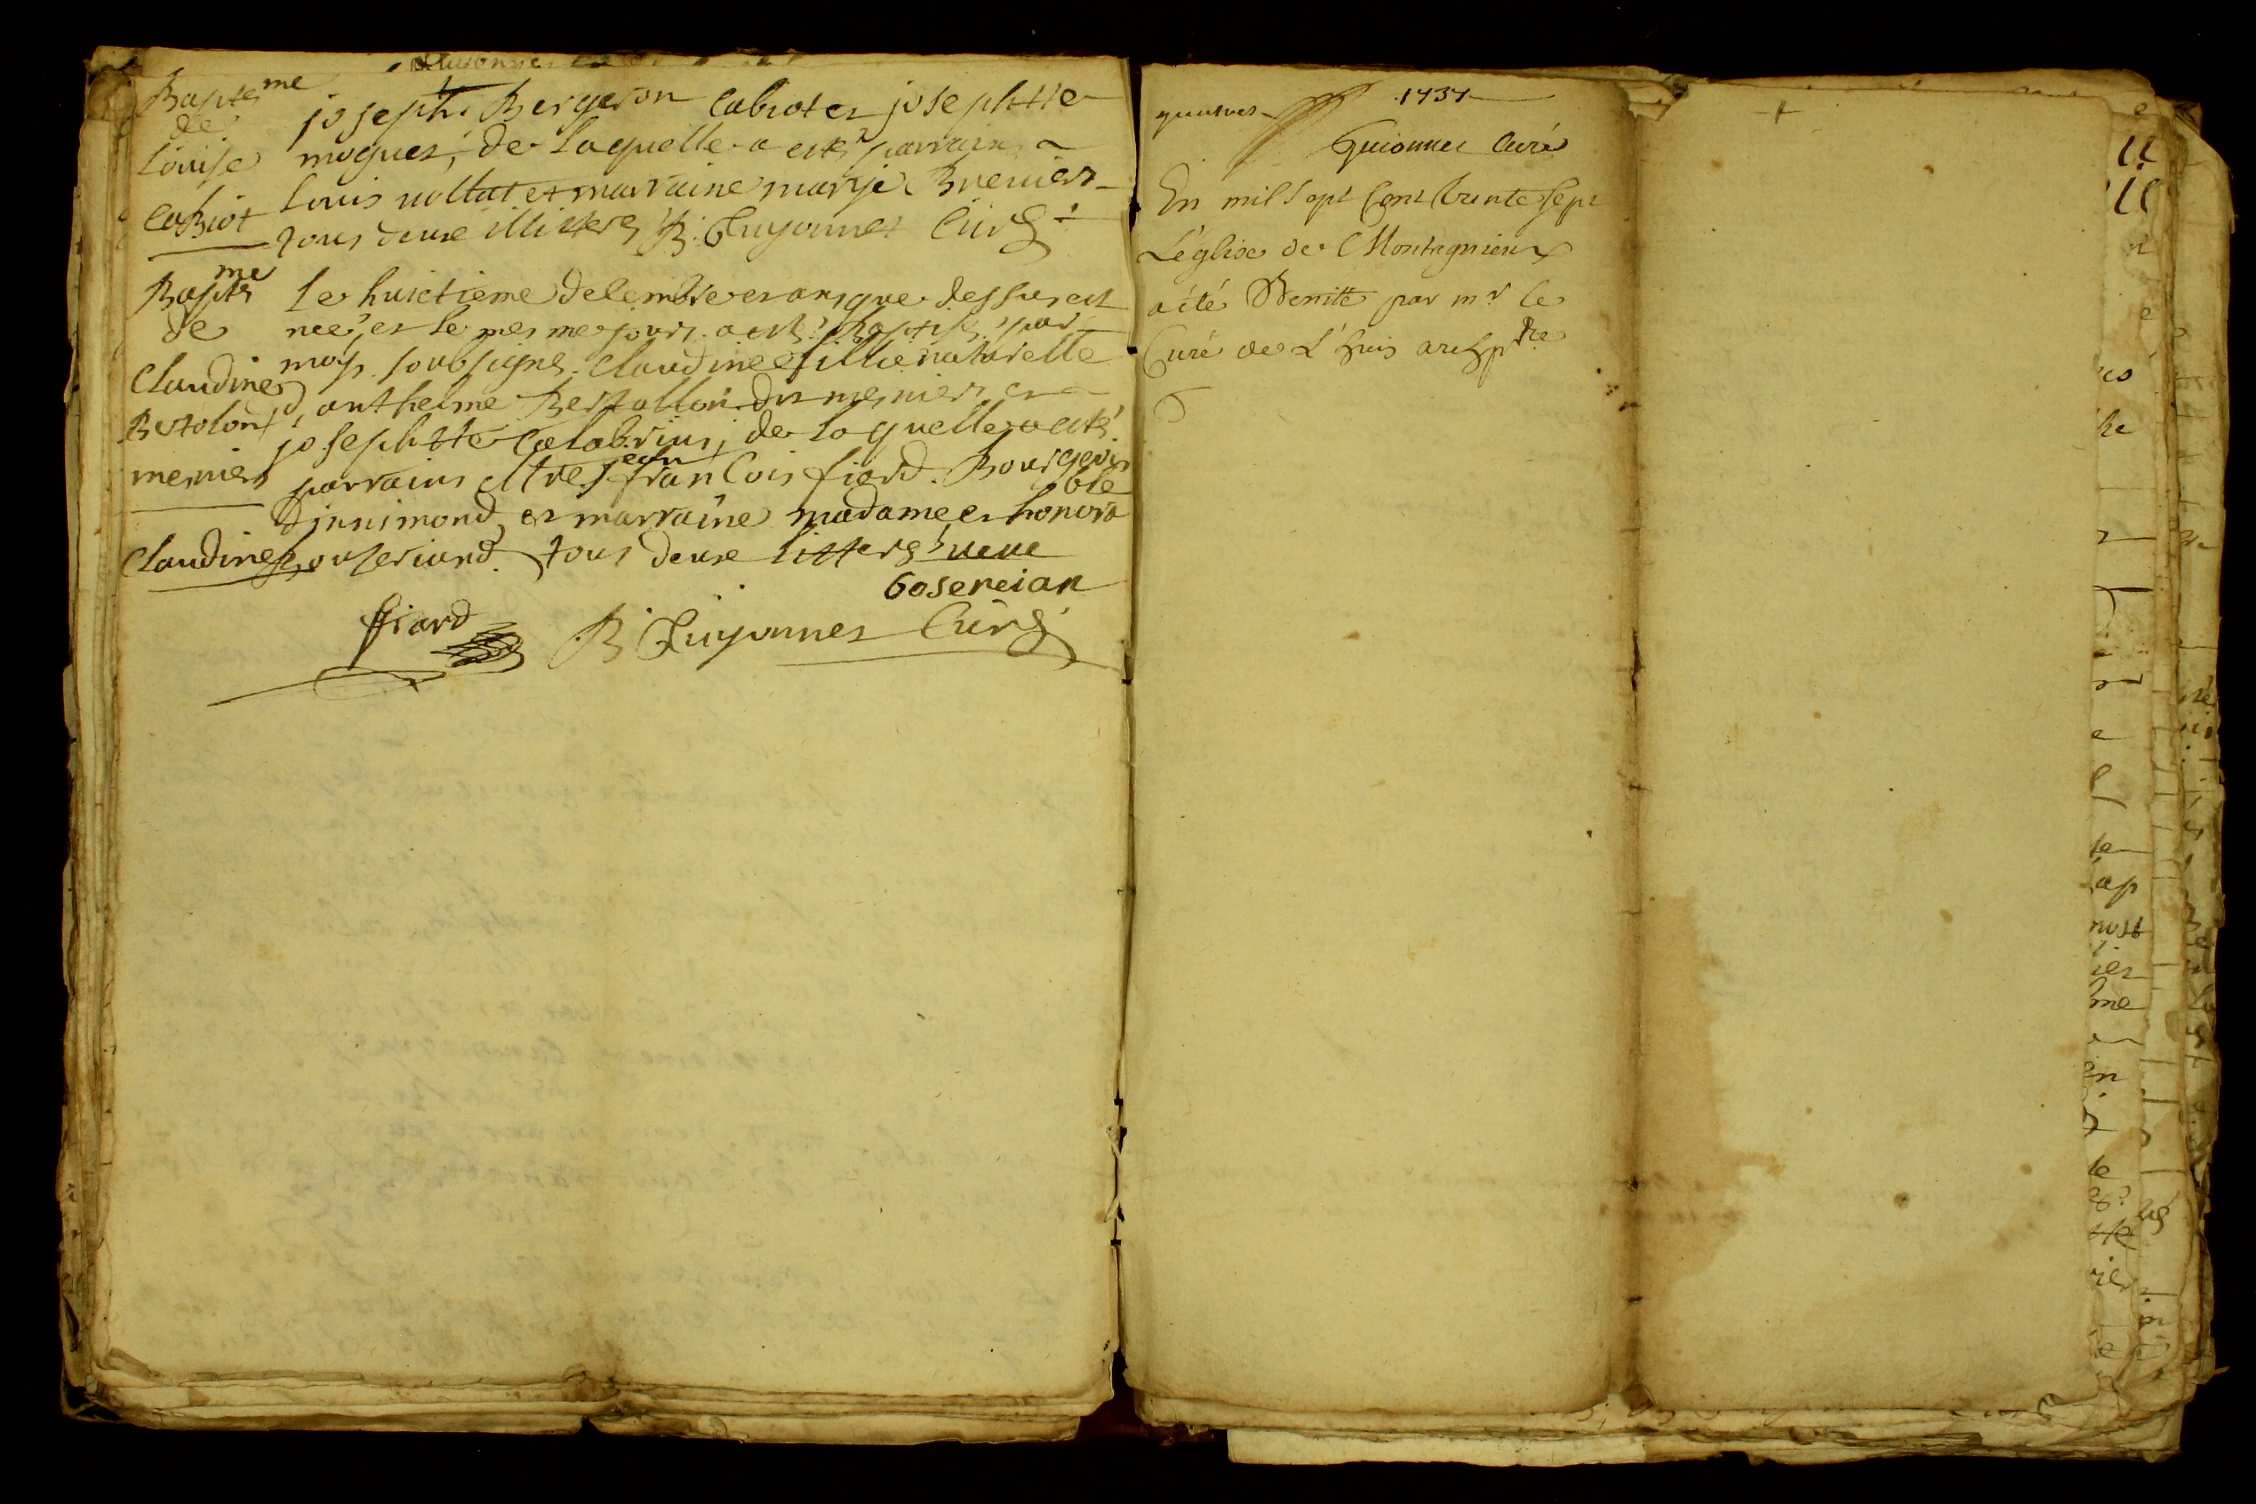 Baptesme
de
Louise
Cabiot
joseph Bergeron Cabiot et josephtte
moguet, de laquelle a esté parrain
Louis nollat et marraine marie Brenier
tous deux illitterés B. Guyonnet Curé
Baptesme
de
Claudine
Bertolon
mernier
le huictieme decembre et an que dessus est
neé, et le mesme jour a esté Baptisé par
moy soubsigné Claudine fillie naturelle
d'anthelme Bertollon dit mernier et
josephtte de laquelle a esté
parrain jean francois fiard Bourgeois
d'innimond et marraine madame et honorable
Claudine tous deux litterés veue
Gosereian
ffiard
B Guyonnet Curé
1737
Guionnet Curé
En mil sept Cent trente sept
L'église de Montagnieux
a été Benitte par mr le
Curé de L'huis archptre